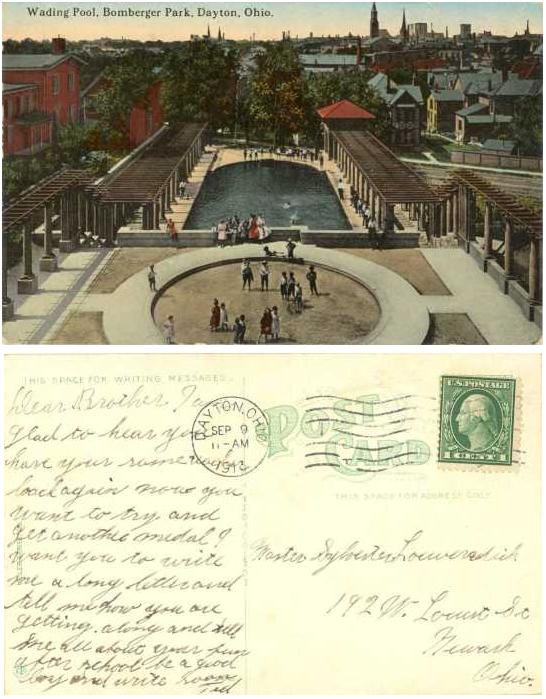 Wading Pool, Bomberger Park, Dayton, Ohio.
THIS SPACE FOR WRITING MESSAGES
Dear Brother I am
glad to hear you
have your
back again now you
want to try and
get another medal I
want you to write
me a long letter and
tell me how you are
getting along and tell
me all about your fun
after school be a good
boy and write soon
DAYTON, OHIO
SEP 9
11-AM
POST
CARD
U.S. POSTAGE
1 CENT 1
THIS SPACE FOR ADDRESS ONLY
Master Sylvester
192 W. Locust St
Newark
Ohio.